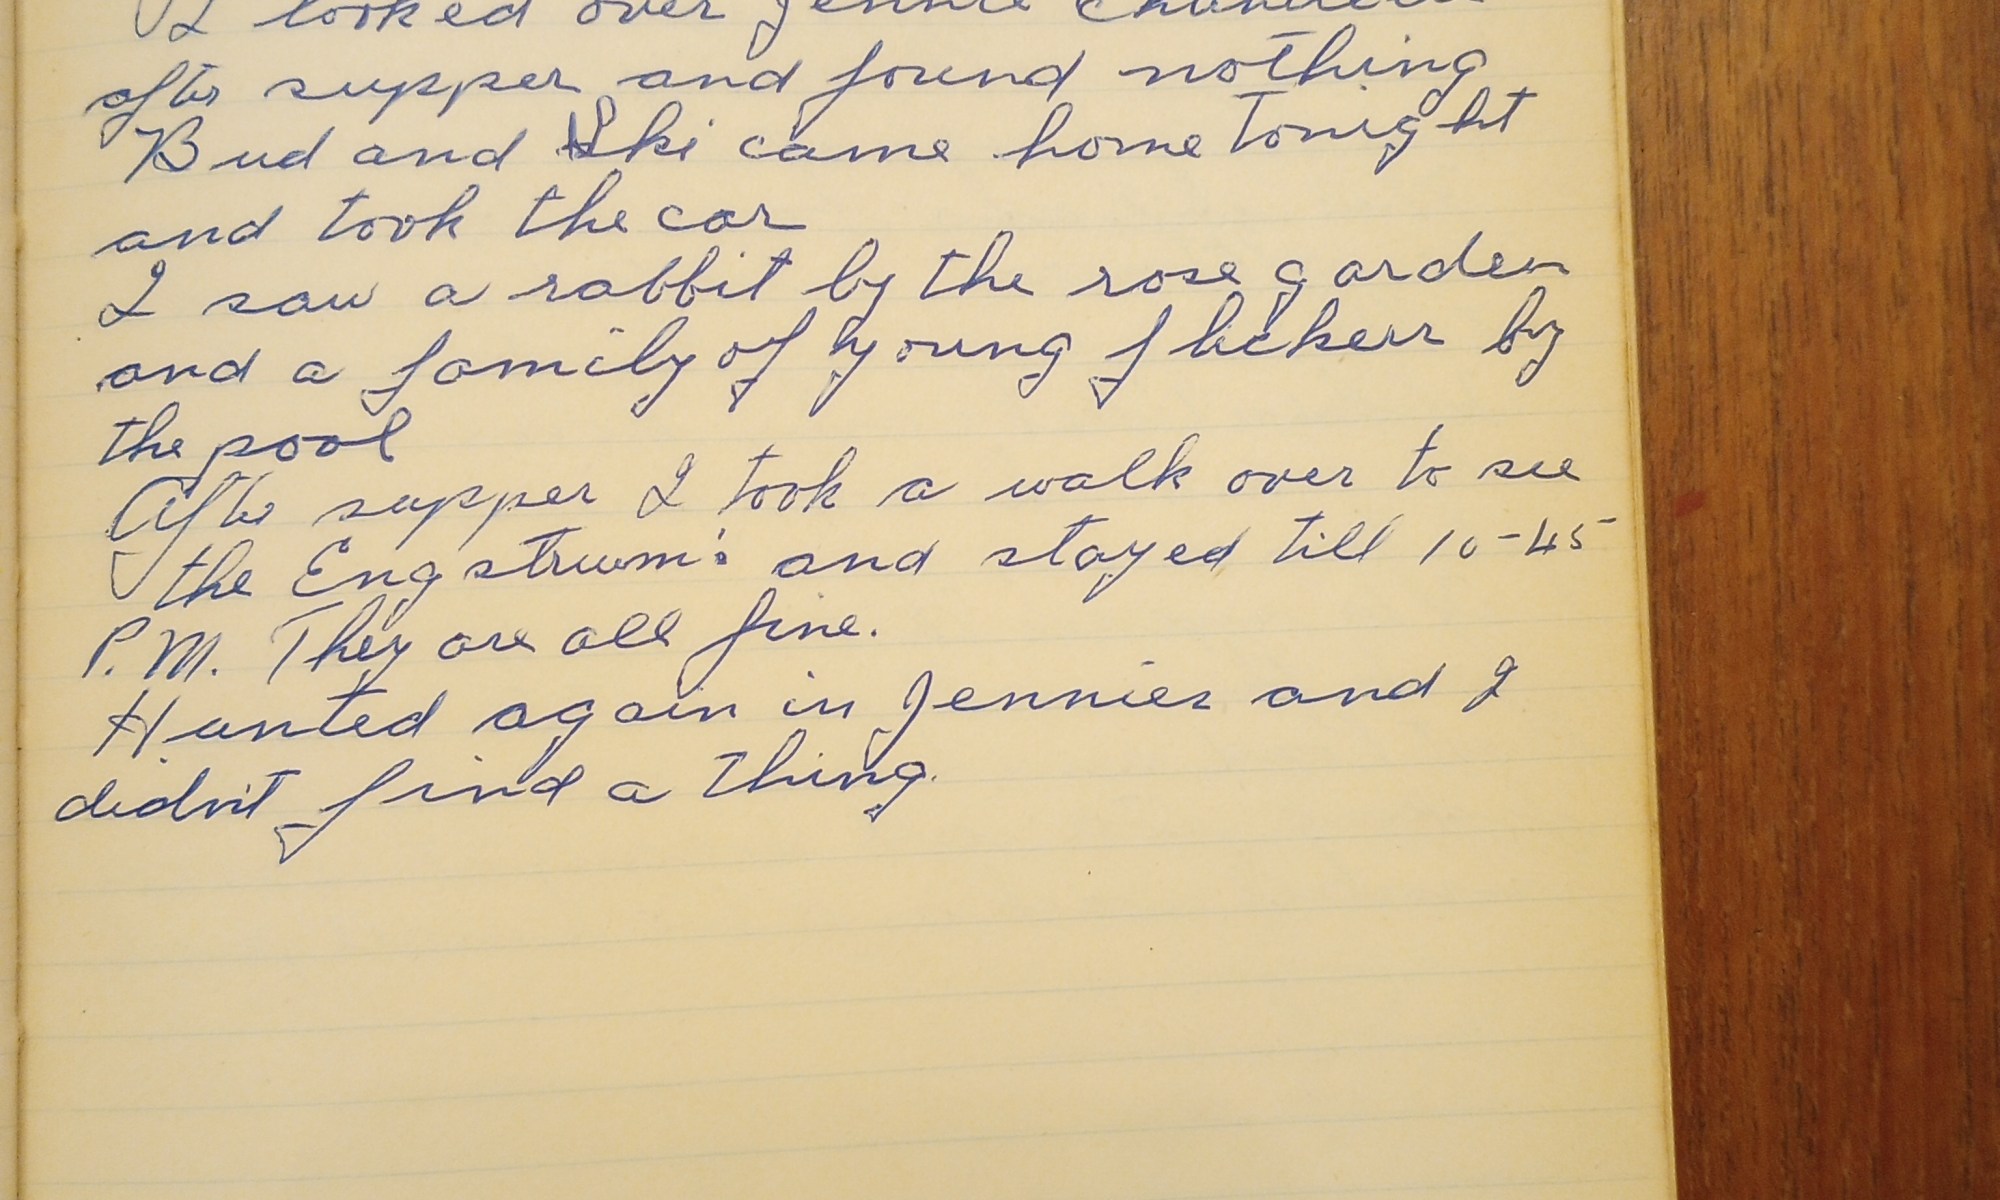 I looked over Jennie
after supper and found nothing
Bud and Ski came home tonight
and took the car
I saw a rabbit by the rose garden
and a family of young flickers by
the pool
After supper I took a walk over to see
the Engstrum's and stayed till 10-45
P.M. They are all fine.
Hunted again in Jennies and I
didn't find a thing.